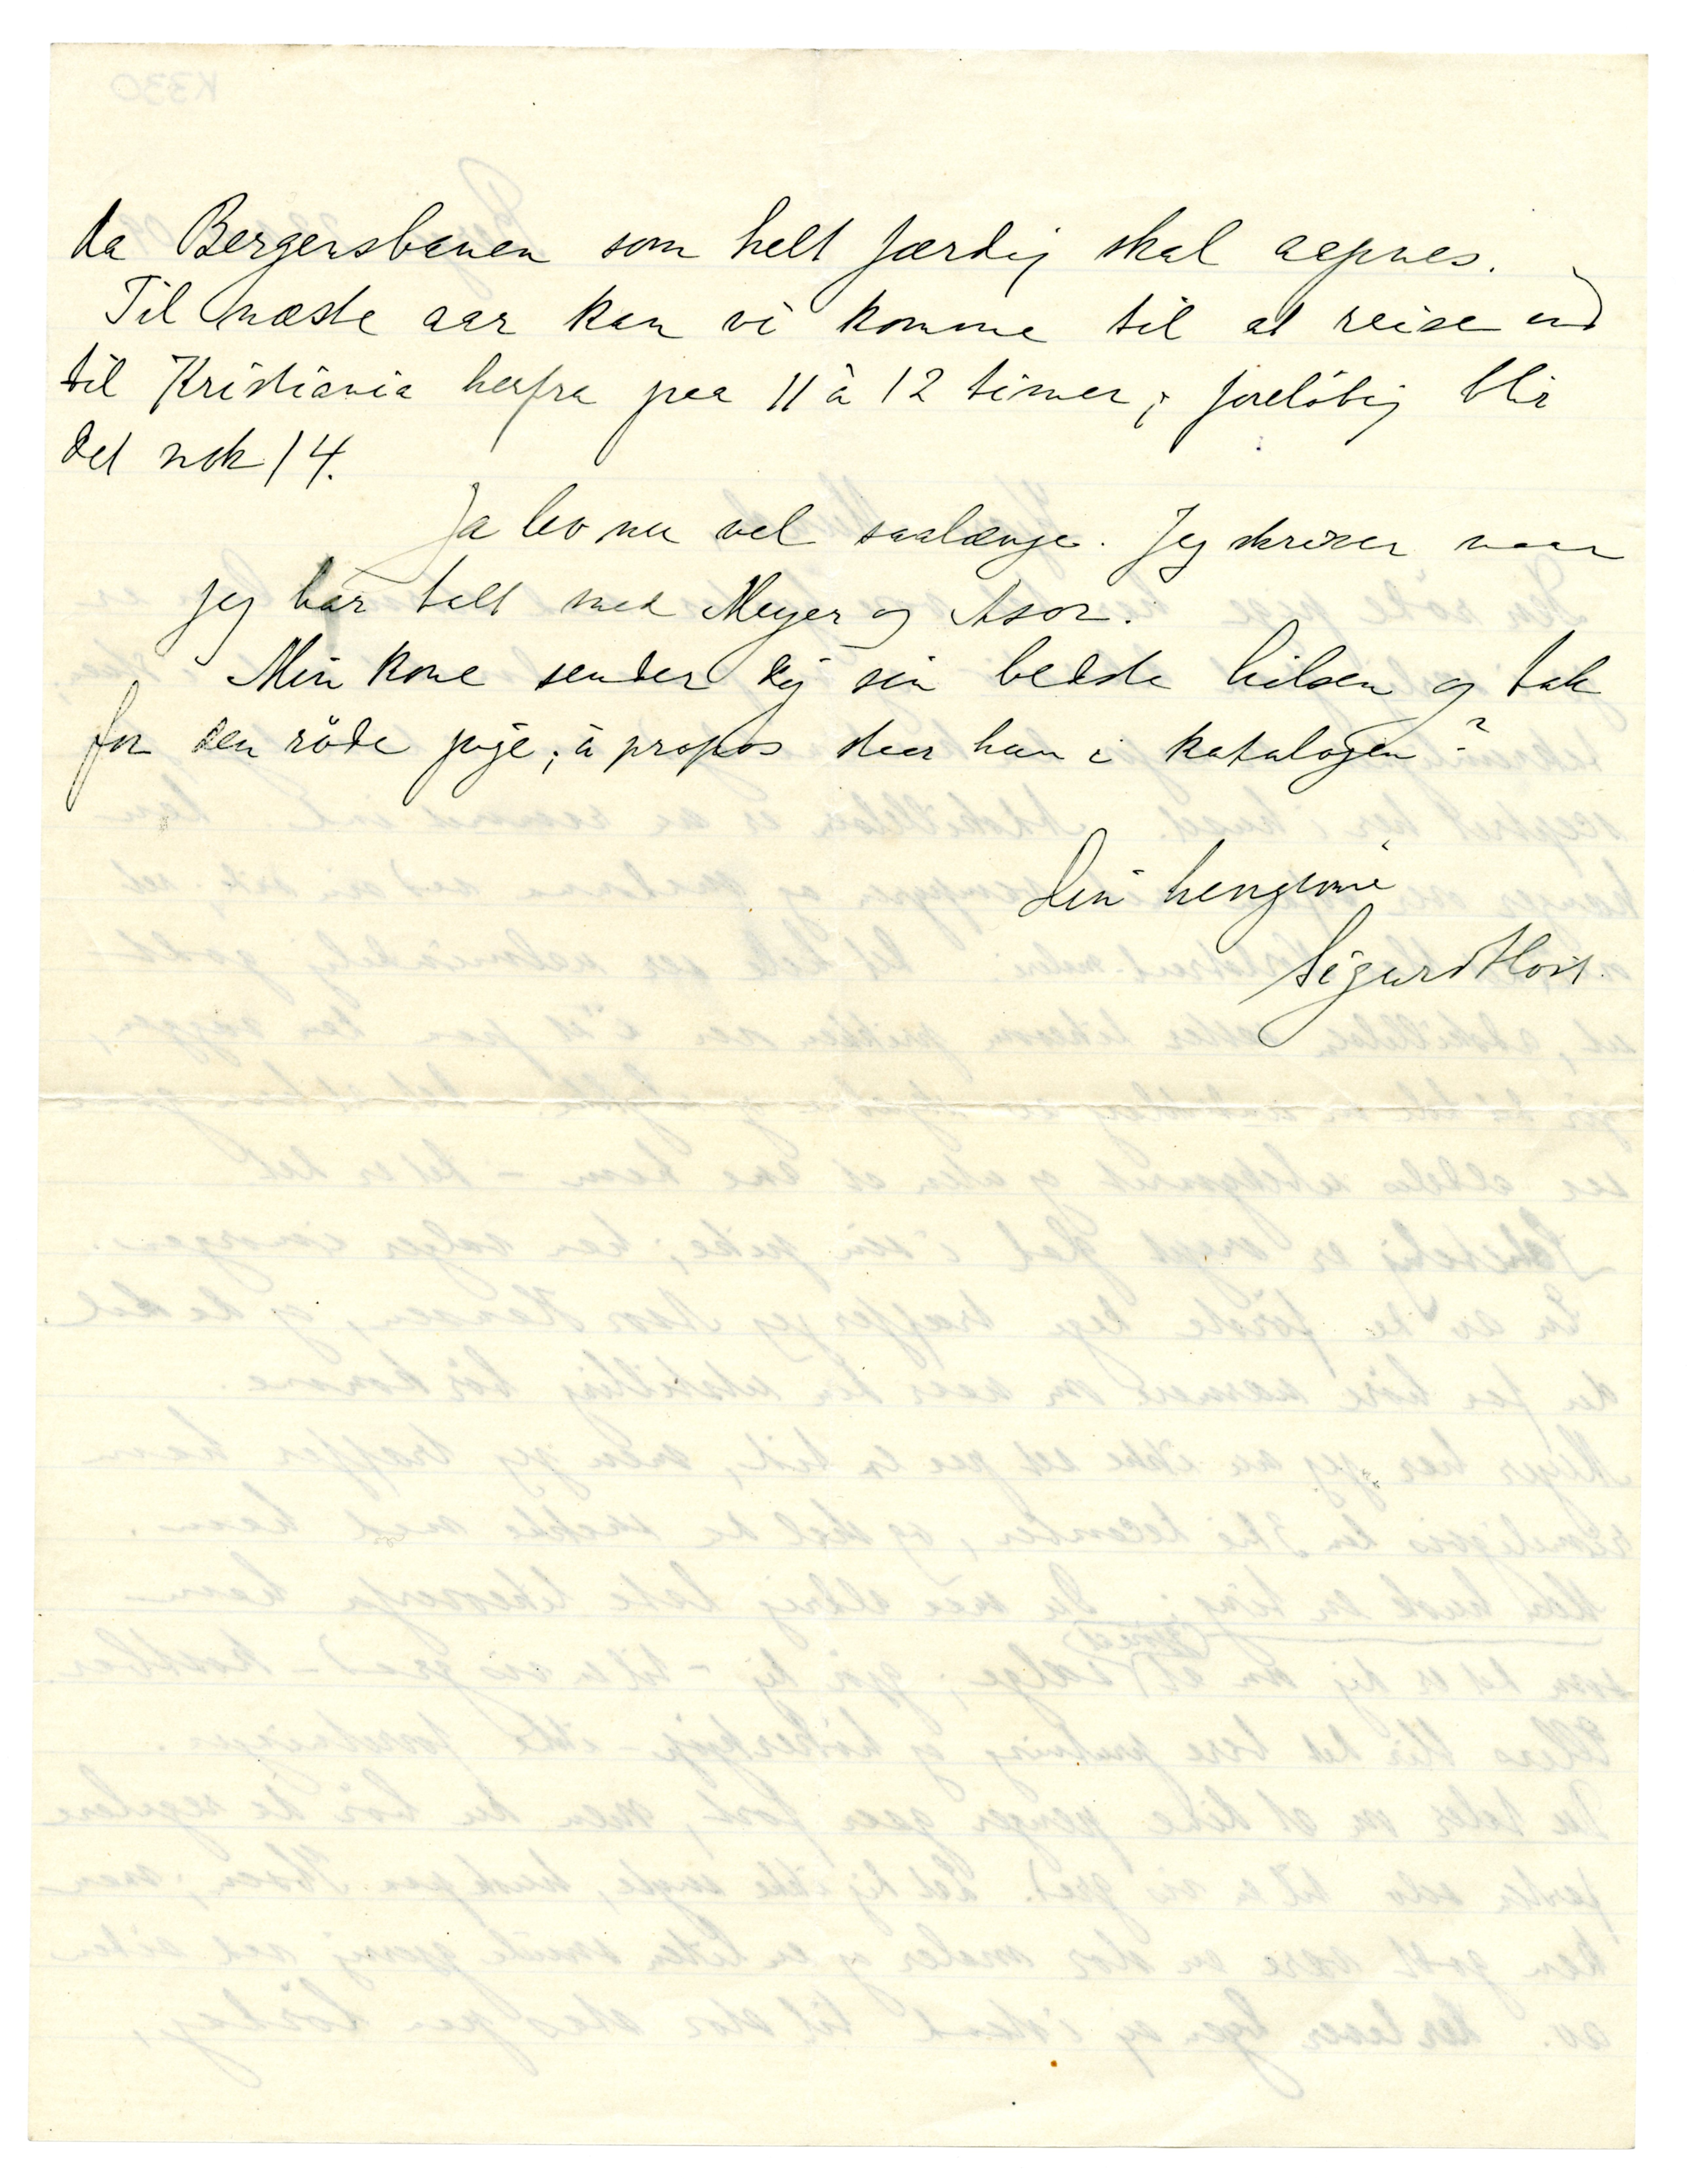 da Bergensbanen som helt færdig skal aapnes.
Til næste aar kan vi komme til at reise ind
til Kristiania herfra paa 11 à 12 timer; foreløbig blir
det nok 14.
Ja lev nu vel saalænge. Jeg skriver naar
jeg har talt med Meyer og Ason.
Min kone sender dig sin bedste hilsen og tak
for den røde pige; à propos staar hun i katalogen?
Din hengivne
Sigurd Høst.